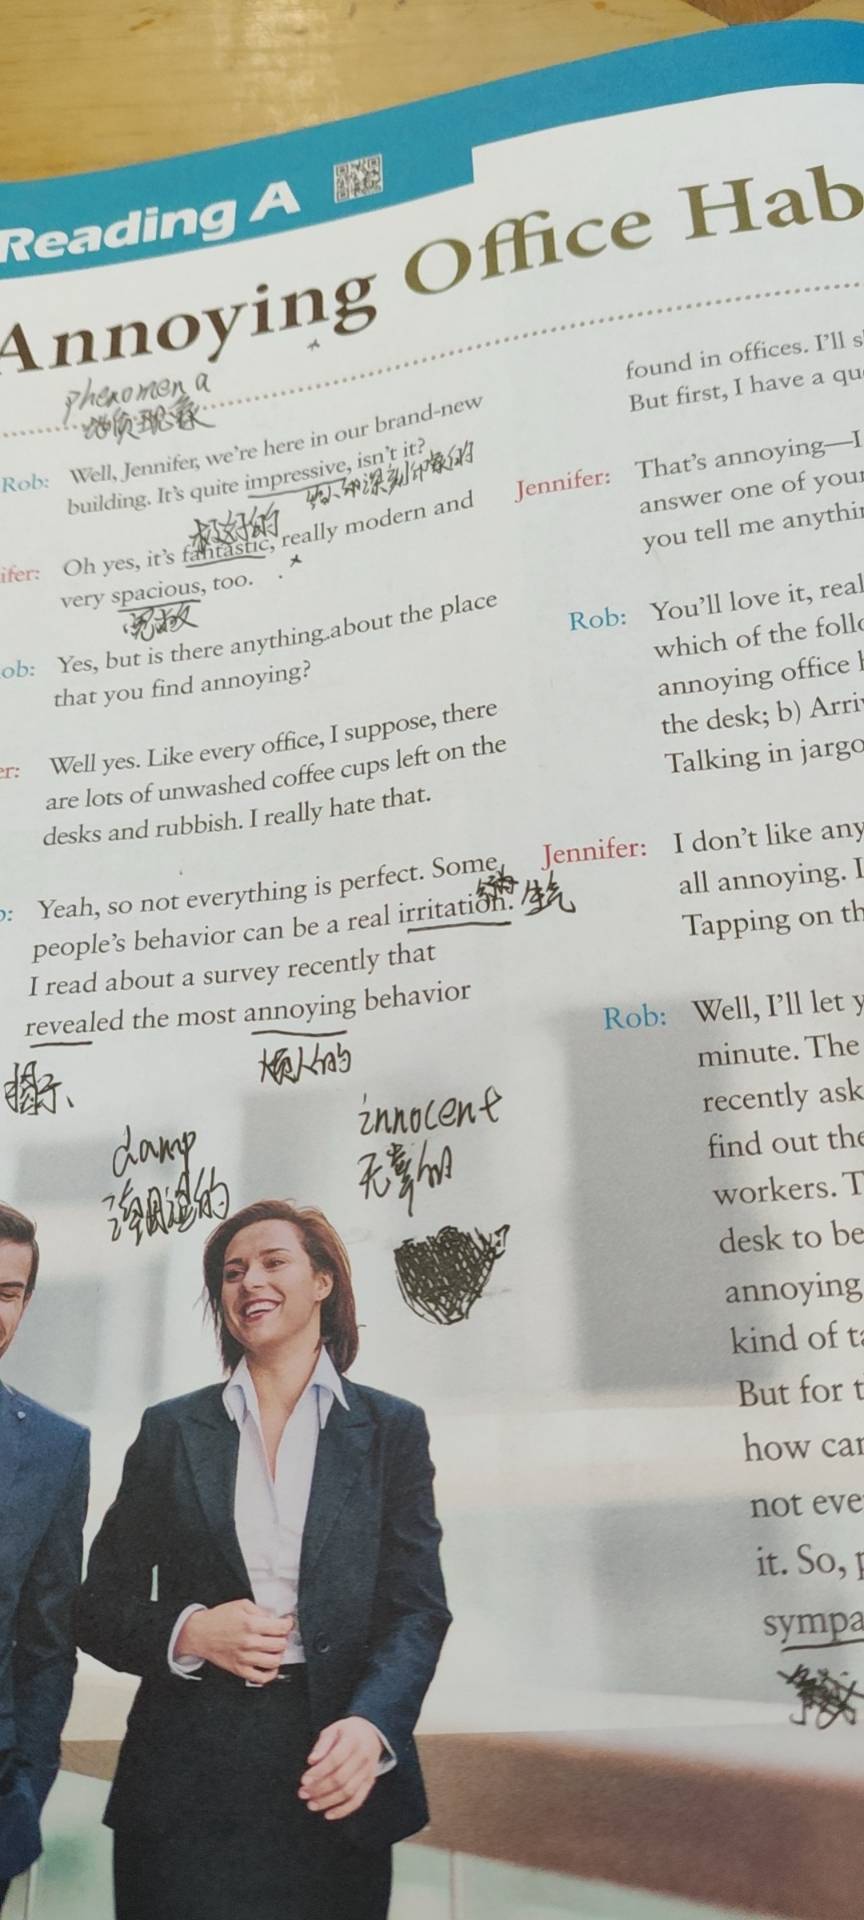 Reading A
Annoying Office Hab
phenomena
现象
Rob: Well, Jennifer, we're here in our brand-new
building. It's quite impressive, isn't it?
给人印深刻印象的
极好的
ifer: Oh yes, it's fantastic, really modern and
very spacious, too.
宽敞
ob: Yes, but is there anything about the place
that you find annoying?
er: Well yes. Like every office, I suppose, there
are lots of unwashed coffee cups left on the
desks and rubbish. I really hate that.
b: Yeah, so not everything is perfect. Some
people's behavior can be a real irritation.
生气
I read about a survey recently that
revealed the most annoying behavior
揭示
烦人的
damp
innocent
无辜的
found in offices. I'll s
But first, I have a qu
Jennifer: That's annoying—I
answer one of your
you tell me anythin
Rob: You'll love it, real
which of the follo
annoying office h
the desk; b) Arri
Talking in jargo
Jennifer: I don't like any
all annoying. I
Tapping on th
Rob: Well, I'll let y
minute. The
recently ask
find out the
workers. T
desk to be
annoying
kind of ta
But for t
how can
not eve
it. So, p
sympa